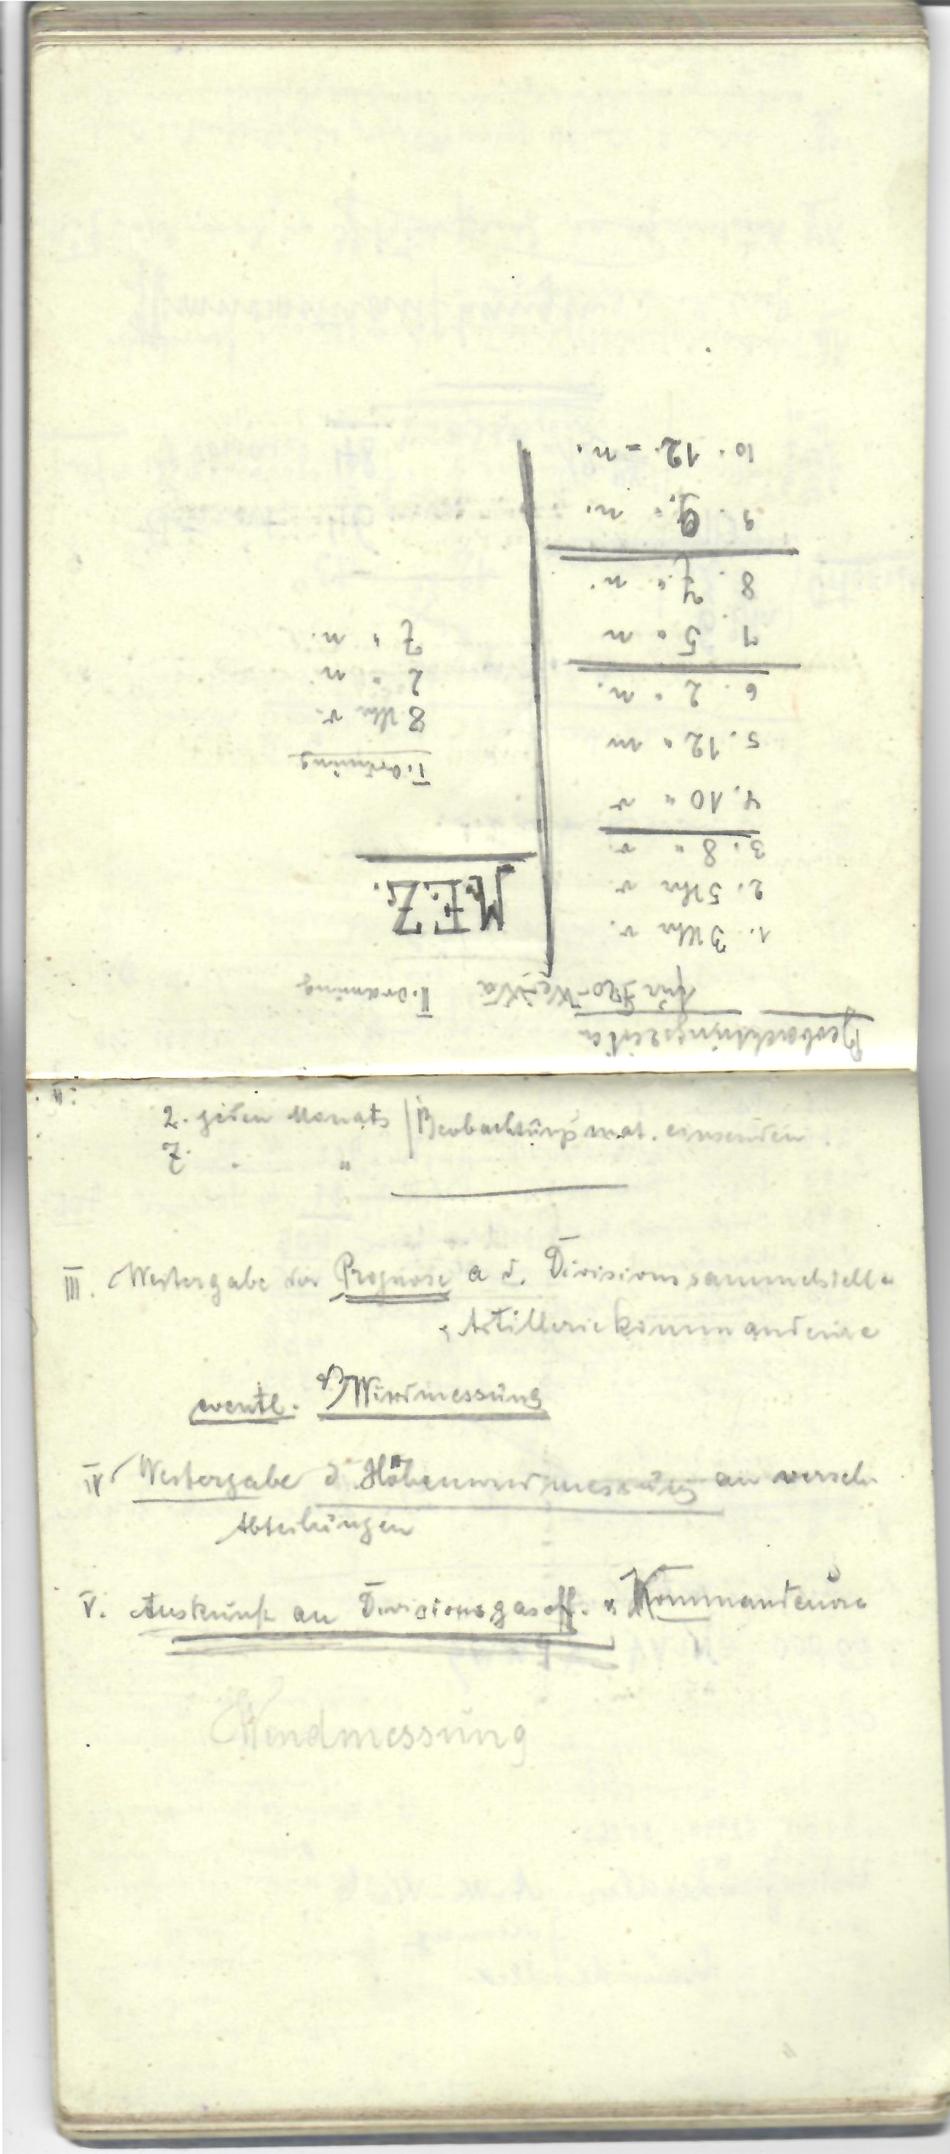 Beobachtungszeiten
für Fro-We-Wa II. Ordnung
1. 3 Uhr v.
2. 5 Uhr v.
3. 8 " v.
4. 10 " v
5. 12 " m
6. 2 " n.
7. 5 " n
8. 7 " n.
9. 9 " n.
10. 12 = n.
M.E.Z.
I. Ordnung
8 Uhr v.
2 " n
7 " n.
2. jeden Monats Beobachtungsmat. einsenden
7. " "
III. Weitergabe der Prognose a d. Divisionssammelstelle
" Artilleriekommandeure
eventl. Windmessung
IV Weitergabe d. Höhenwindmessung an versch.
Abteilungen
V. Auskunft an Divisionsgasoff. u Kommandeure
Windmessung